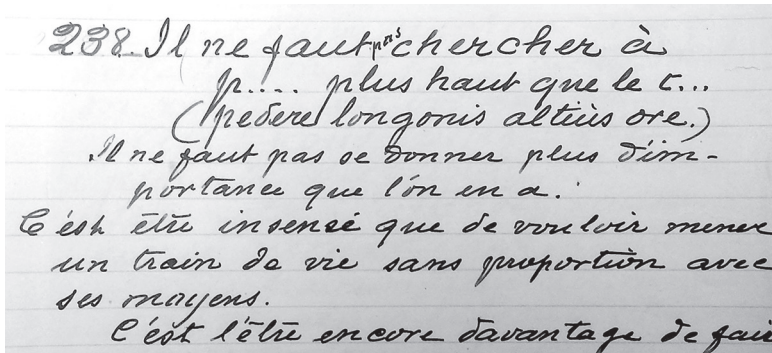 238. Il ne faut pas chercher à
p.... plus haut que le c...
(pedere longonis altiùs ore.)
Il ne faut pas se donner plus d'im-
portance que l'on en a.
C'ést être insensé que de vouloir mener
un train de vie sans proportion avec
ses moyens.
C'ést l'être encore davantage de fair